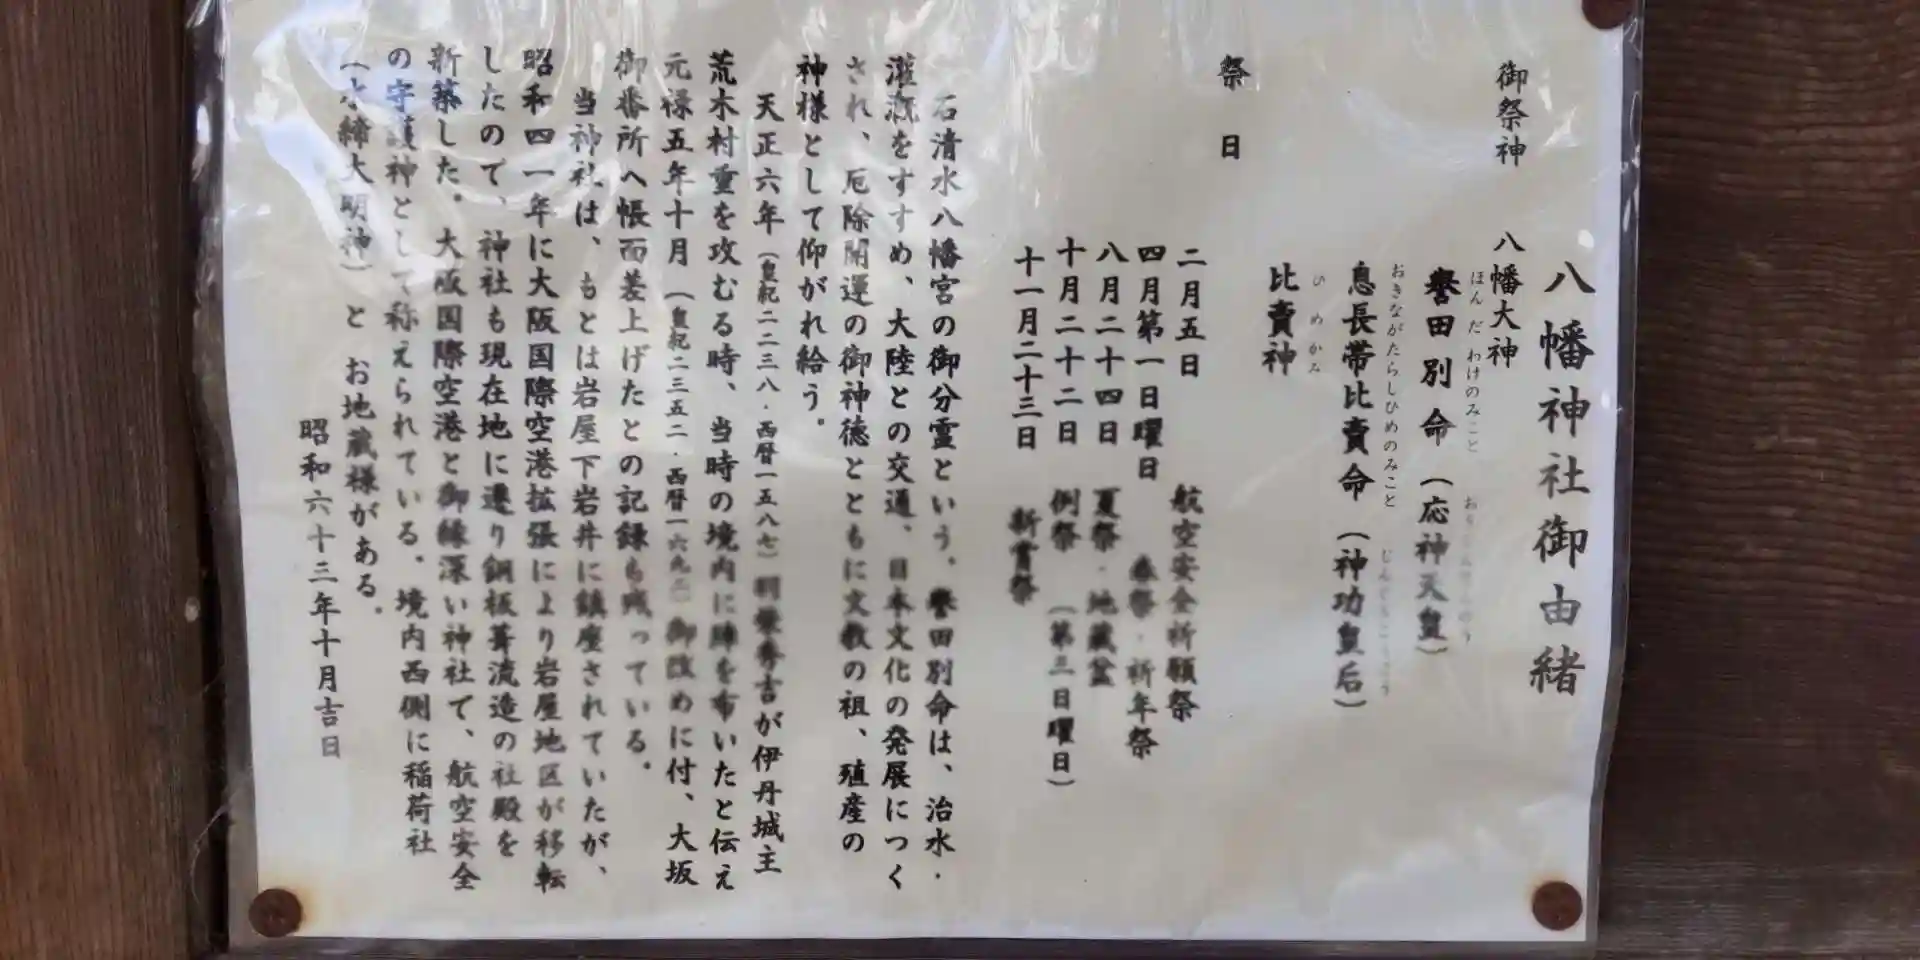 八幡神社御由緒
御祭神 八幡大神
ほんだわけのみこと
誉田別命(応神天皇)
おきながたらしひめのみこと
息長帯比賣命(神功皇后)
ひめかみ
比賣神
祭日
二月五日 航空安全祈願祭
四月第一日曜日 春祭・祈年祭
八月二十四日 夏祭・地蔵盆
十月二十二日 例祭 (第三日曜日)
十一月二十三日 新嘗祭
石清水八幡宮の御分霊という。誉田別命は、治水・
灌漑をすすめ、大陸との交通、日本文化の発展につく
され、厄除開運の御神徳とともに文教の祖、殖産の
神様として仰がれ給う。
天正六年(皇紀二二三八・西暦一五八七)羽柴秀吉が伊丹城主
荒木村重を攻むる時、当時の境内に陣を布いたと伝え
元禄五年十月(皇紀二三五二・西暦一六九二)御改めに付、大坂
御番所へ帳面差上げたとの記録も残っている。
当神社は、もとは岩屋下岩井に鎮座されていたが、
昭和四一年に大阪国際空港拡張により岩屋地区が移転
したので、神社も現在地に遷り銅板葺流造の社殿を
新築した。大阪国際空港と御縁深い神社で、航空安全
の守護神として称えられている。境内西側に稲荷社
(水締大明神)と お地蔵様がある。
昭和六十三年十月吉日